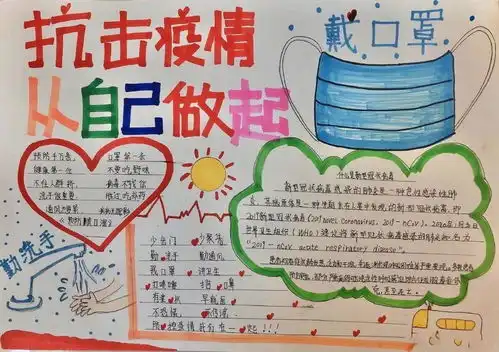 抗击疫情
从自己做起
戴口罩
预防千万条，口罩第一条
健康第一位 不要吃野味
不往人群挤，病毒不找你
洗手很重要
《预防顺口溜》
勤洗手
少出门 少聚集
勤洗手 勤通风
戴口罩 讲卫生
打喷嚏 捂口鼻
有症状 早就医
不恐慌，不传谣
防控疫情我们在一起！！！
什么是新型冠状病毒
新型冠状病毒感染的肺炎是一种急性感染性肺
炎，其病原体是一种先前未在人类中发现的新型冠状病毒，即
2019新型冠状病毒(2019 novel Coronavirus, 2019-nCoV)。2020年1月
世界卫生组织(WHO)建议将新型冠状病毒感染的肺炎命名为
"2019-nCoV acute respiratory disease"。